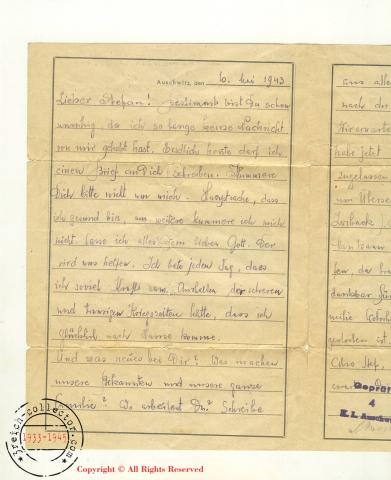 Auschwitz, den 10. Mai 1943
Lieber Stefan! bestimmt bist Du schon
unruhig, da ich so lange keine Nachricht
von mir gehabt hast. Endlich heute darf ich
einen Brief an Dich schreiben. Kummere
Dich bitte nicht um mich. Hauptsache, dass
ich gesund bin, um weitere kummere ich mich
nicht. Lasse ich alles dem lieben Gott. Der
wird uns helfen. Ich bete jeden Tag, dass
ich soviel Kraft zum Aushalten der schweren
und traurigen Kriegszeiten hätte, dass ich
glücklich nach Hause komme.
Und was neues bei Dir? Was machen
unsere Bekannten und unsere ganze
Familie? Wo arbeitest Du? Schreibe
aus alle
nach der
habe jetzt
zugelassen
um Überse
Zwieback,
dankbar für
milie
gestorben ist.
Geprüf
4
K. L. Auschw
3reich-collector.com
1933-1945
Copyright © All Rights Reserved